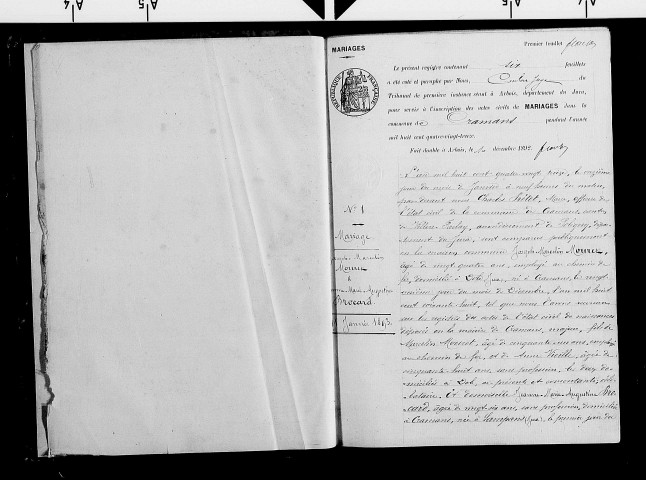 MARIAGES
Premier feuillet
Le présent registre contenant six feuillets
a été coté et paraphé par Nous, du
Tribunal de première instance séant à Arbois, département du Jura,
pour servir à l'inscription des actes civils de MARIAGES dans la
commune de Cramans pendant l'année
mil huit cent quatre-vingt-treize.
Fait double à Arbois, le décembre 1892.
RÉPUBLIQUE FRANÇAISE
N° 1
Mariage
Joseph Marcelin
Mouret
&
Marie Augustine
Brocard
Janvier 1893.
L'an mil huit cent quatre vingt treize, le
jour du mois de Janvier à neuf heures du matin,
par devant nous Charles Maire, officier de
l'état civil de la commune de Cramans, canton
de Villers Farlay, arrondissement de Poligny, dépar-
tement du Jura, ont comparu publiquement
en la maison commune Joseph Marcelin Mouret
âgé de vingt quatre ans, employé au chemin de
fer, domicilié à né à Cramans, le vingt
jour du mois de Décembre, l'an mil huit
cent soixante huit, tel que nous l'avons
sur les registres des actes de l'état civil de naissances
déposés en la mairie de Cramans, majeur, fils de
Marcelin Mouret, âgé de cinquante ans, employé
au chemin de fer, et de Anne âgée de
cinquante huit ans, sans profession, les deux do-
miciliés à ici présents et consentants, céli-
bataire. Et demoiselle Jeanne Marie Augustine Bro-
card, âgée de vingt six ans, sans profession, domiciliée
à Cramans, née à le premier jour du